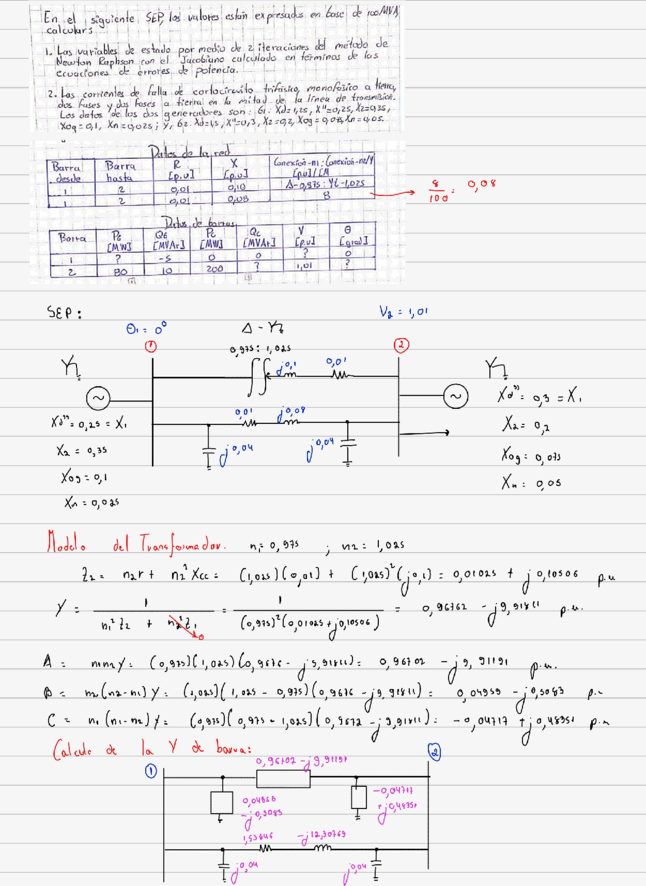 En el siguiente SEP, los valores están expresados en base de 100 MVA,
calcular:
1. Las variables de estado por medio de 2 iteraciones del método de
Newton Raphson con el Jacobiano calculado en términos de las
ecuaciones de errores de potencia.
2. Las corrientes de falla de cortocircuito trifásico, monofásico a tierra,
dos fases y dos fases a tierra en la mitad de la línea de transmisión.
Los datos de los dos generadores son: G1: Xd=1,25, X"=0,25, X2=0,35,
X0g=0,1, Xn=0,025; y, G2: Xd=1,5, X"=0,3, X2=0,2, X0g=0,075, Xn=0,05.
Datos de la red
Barra desde | Barra hasta | R [p.u] | X [p.u] | Conexión-n1 : Conexión-n2/Y [pu]/CM
1 | 2 | 0,01 | 0,10 | Δ-0,975 : Y-1,025
1 | 2 | 0,01 | 0,08 | 8
8/100 = 0,08
Datos de barras
Barra | PG [MW] | QG [MVAr] | Pc [MW] | Qc [MVAr] | V [p.u] | θ [grad]
1 | ? | -5 | 0 | 0 | ? | 0
2 | 80 | 10 | 200 | ? | 1,01 | ?
SEP:
θ1 = 0°
Δ - Y
V2 = 1,01
0,975 : 1,025
1
2
j0,1
0,01
0,01
j0,08
j0,04
j0,04
Xd'' = 0,25 = X1
X2 = 0,35
X0g = 0,1
Xn = 0,025
Xd'' = 0,3 = X1
X2 = 0,2
X0g = 0,075
Xn = 0,05
Modelo del Transformador. n1 = 0,975 ; n2 = 1,025
Z2 = n2 r + n2² Xcc = (1,025)(0,01) + (1,025)²(j0,1) = 0,01025 + j0,10506 p.u
Y = 1 / (n1² Z2 + n2² Z1) = 1 / ((0,975)²(0,01025 + j0,10506)) = 0,96762 - j9,91811 p.u.
0
A = n1 n2 Y = (0,975)(1,025)(0,9676 - j9,91811) = 0,96702 - j9,91191 p.u.
B = n2 (n2-n1) Y = (1,025)(1,025 - 0,975)(0,9676 - j9,91811) = 0,04959 - j0,5083 p.u
C = n1 (n1-n2) Y = (0,975)(0,975 - 1,025)(0,9672 - j9,91811) = -0,04717 + j0,48351 p.u
Calculo de la Y de barra:
1
2
0,96702 - j9,91191
0,04958
-j0,5083
-0,04717
+j0,48351
1,53846
-j12,30769
j0,04
j0,04